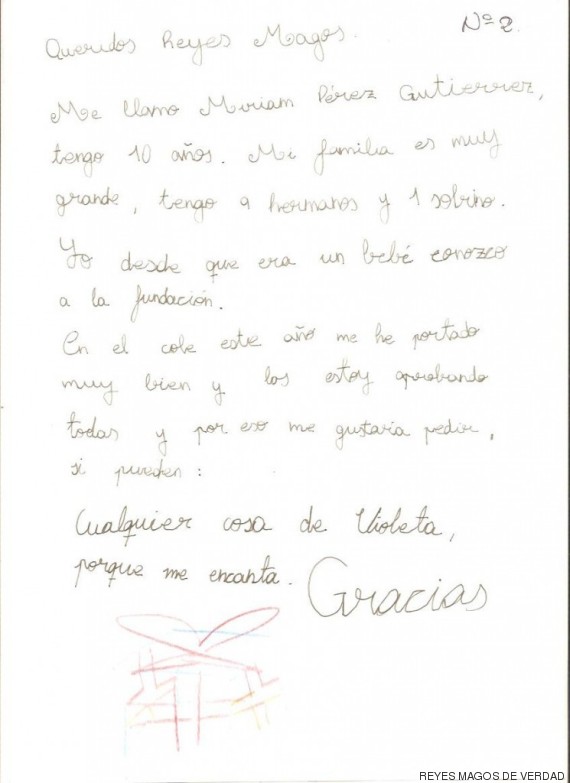 Nº 2.
Queridos Reyes Magos.
Me llamo Miriam Pérez Gutierrez,
tengo 10 años. Mi familia es muy
grande, tengo 9 hermanos y 1 sobrino.
Yo desde que era un bebé conozco
a la fundación.
En el cole este año me he portado
muy bien y las estoy aprobando
todas y por eso me gustaria pedir,
si pueden:
Cualquier cosa de Violeta,
porque me encanta. Gracias
REYES MAGOS DE VERDAD